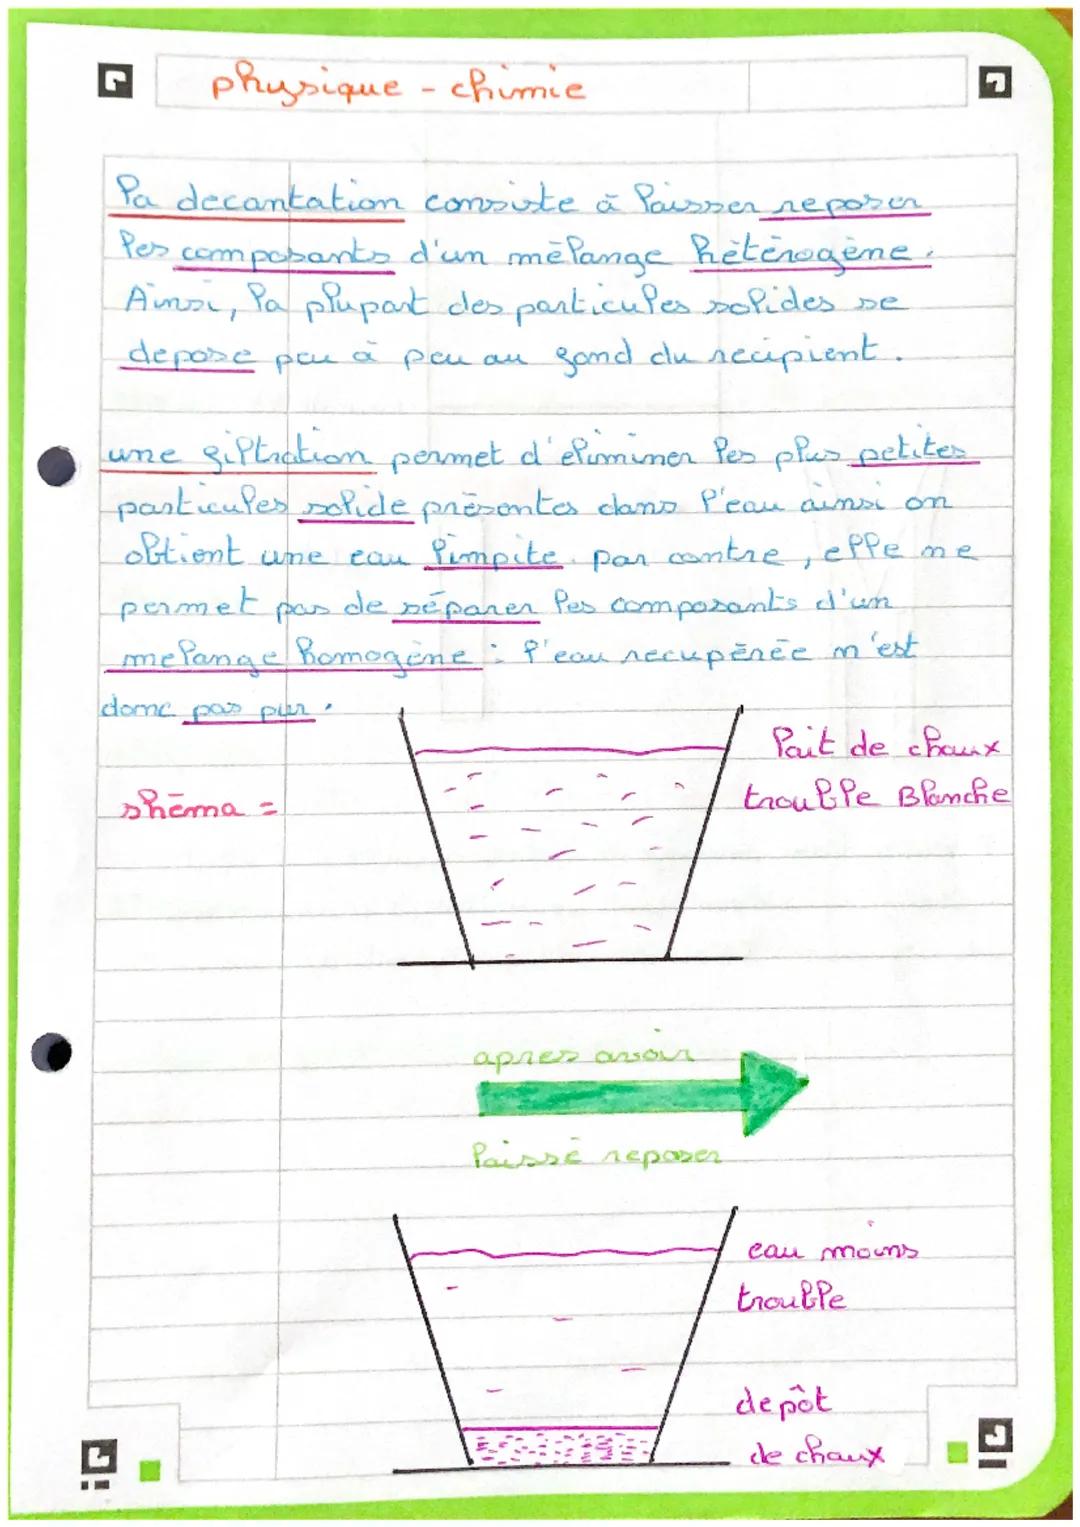 physique - chimie
la decantation consiste à laisser reposer
les composants d'un mélange hétérogène.
Ainsi, la plupart des particules solides se
depose peu à peu au fond du recipient.
une filtration permet d'éliminer les plus petites
particules solide présentes dans l'eau ainsi on
obtient une eau limpite. par contre, elle ne
permet pas de séparer les composants d'un
melange homogène : l'eau recupérée n'est
donc pas pur.
shéma =
lait de chaux
trouble Blanche
apres avoir
laissé reposer
eau moins
trouble
depôt
de chaux